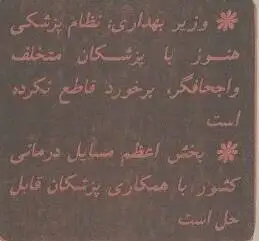 ✽ وزیر بهداری: نظام پزشکی
هنوز با پزشکان متخلف
واجحافگر، برخورد قاطع نکرده
است
✽ بخش اعظم مسایل درمانی
کشور با همکاری پزشکان قابل
حل است